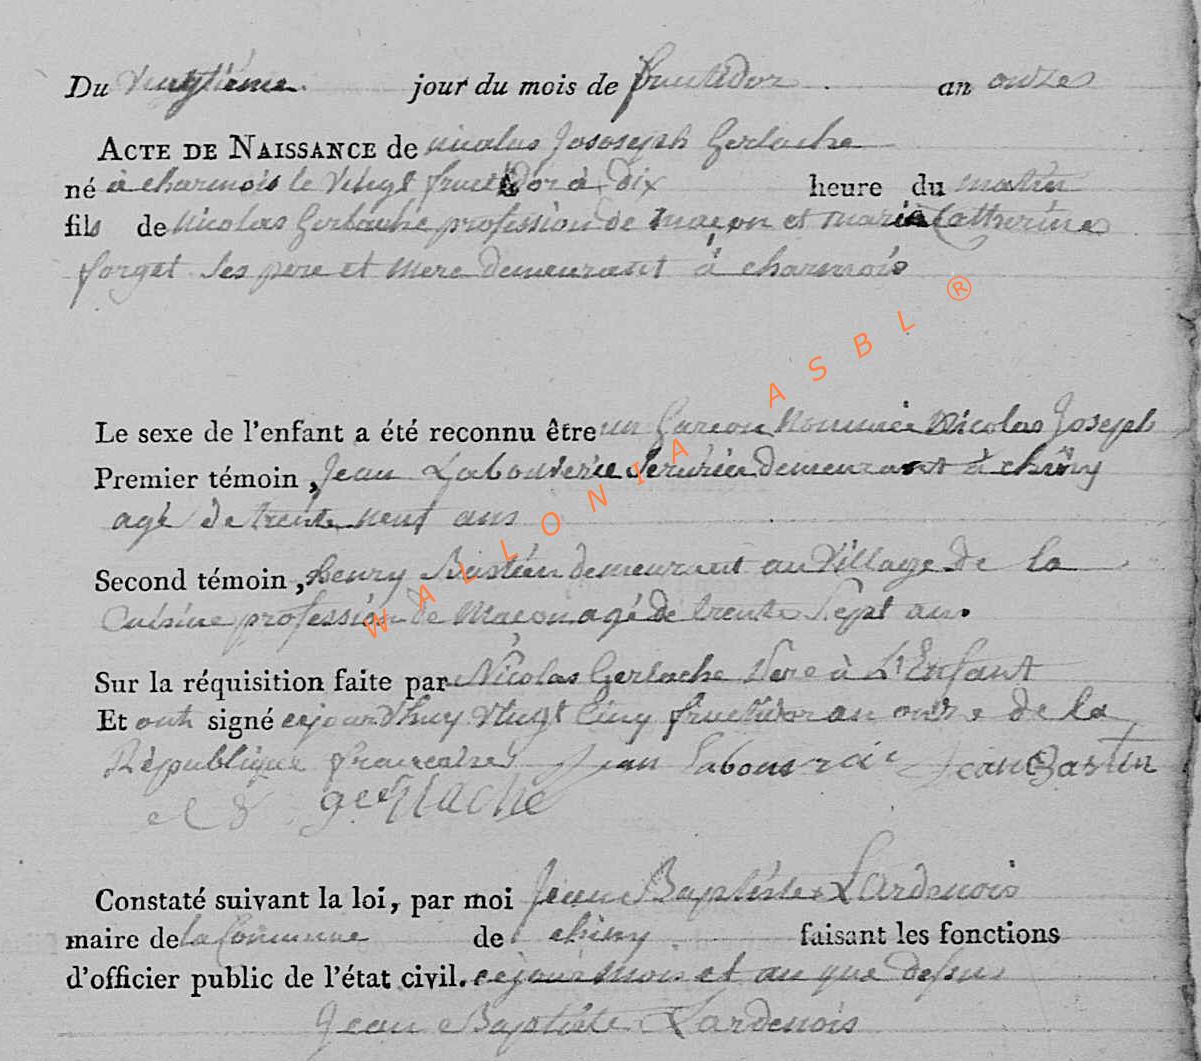 Du vingtiéme jour du mois de fructidor an onze
ACTE DE NAISSANCE de nicolas Jososeph Gerlache
né à charmois le vingt fructidor à dix heure du matin
fils de Nicolas Gerlache profession de maçon et marie Catherine
forget ses pere et mere demeurant à charmois
Le sexe de l'enfant a été reconnu être un Garcon Nommé Nicolas Joseph
Premier témoin, Jean Labouverie Serurier demeurant à chiny
agé de trente neuf ans
Second témoin, henry Bastien demeurant au Village de la
Cuisine profession de Maçon agé de trente Sept ans.
Sur la réquisition faite par Nicolas Gerlache Pere à L'Enfant
Et ont signé cejourd'huy vingt Cinq fructidor an onze de la
République francaise Jean Labouverie Jean Bastin
gerlache
Constaté suivant la loi, par moi Jean Baptiste Lardenois
maire de la Commune de chiny faisant les fonctions
d'officier public de l'état civil. cejour mois et an que dessus
Jean Baptiste Lardenois
WALLONIA ASBL ®